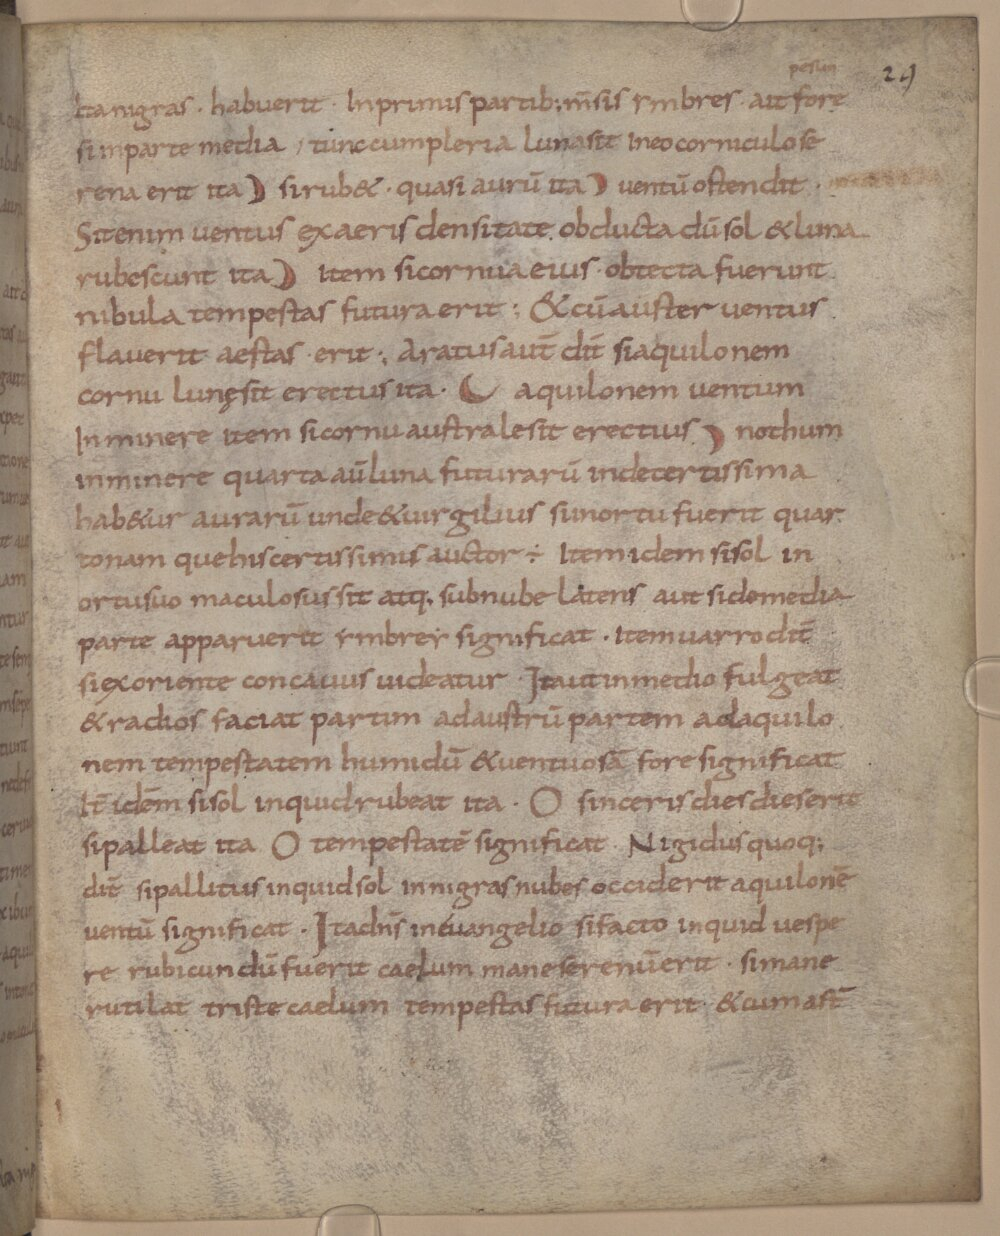 29
ita nigras · habuerit · In primis partib; m̄sis ymbres · ait fore
si in parte media , tunc cum pleria luna sit in eo corniculo se
rena erit ita si rub& · quasi aurū ita ventū ostendit ·
Sit enim ventus ex aeris densitate. obducta dū sol & luna
rubescunt ita Item si cornua eius · obtecta fuerunt
nibula tempestas futura erit ; & cū auster ventus
flauerit aestas · erit ; Aratus aut̄ dit̄ si aquilonem
cornu lunę sit erectus ita · aquilonem uentum
Inminere item si cornu australe sit erectius nothum
inminere quarta aū luna futurarū indecertissima
hab&ur aurarū unde & uirgilius sun ortu fuerit quar
to nam que his certissimus auctor ÷ Item idem si sol in
ortu suo maculosus sit atq; sub nube latens aut si de media
parte apparuerit ymbrer significat · item uarro dit̄
si ex oriente concauus uideatur Ita ut in medio fulgeat
& radios faciat partim ad austrū partem ad aquilo
nem tempestatem humidū & uentuosā fore significat
It̄ idēm si sol inquid rubeat ita · sinceris dies dies erit
si palleat ita tempestatē significat Nigidus quoq;
dit̄ si pallitus inquid sol in nigras nubes occiderit aquilonē
uentū significat · Ita dn̄s in euangelio si facto inquid uespe
re rubicundū fuerit caelum mane serenū erit · si mane
rutilat triste caelum tempestas futura erit · & cum ast̄